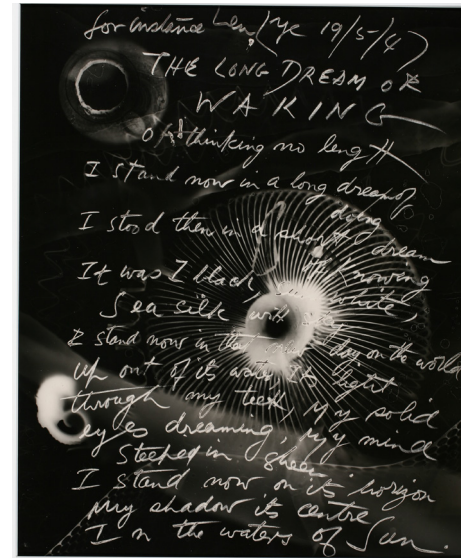 for instance Len (Lye 19/5/47)
THE LONG DREAM OF
WAKING
Of thinking no length
I stand now in a long dream of
doing
I stood then in a short dream
of knowing
It was I black, white,
Sea silk with
I stand now in that day on the world
up out of its water its light
through my teeth, my solid
eyes dreaming, my mind
Steeped in sheen
I stand now on its horizon
my shadow its centre
In the waters of Sun.